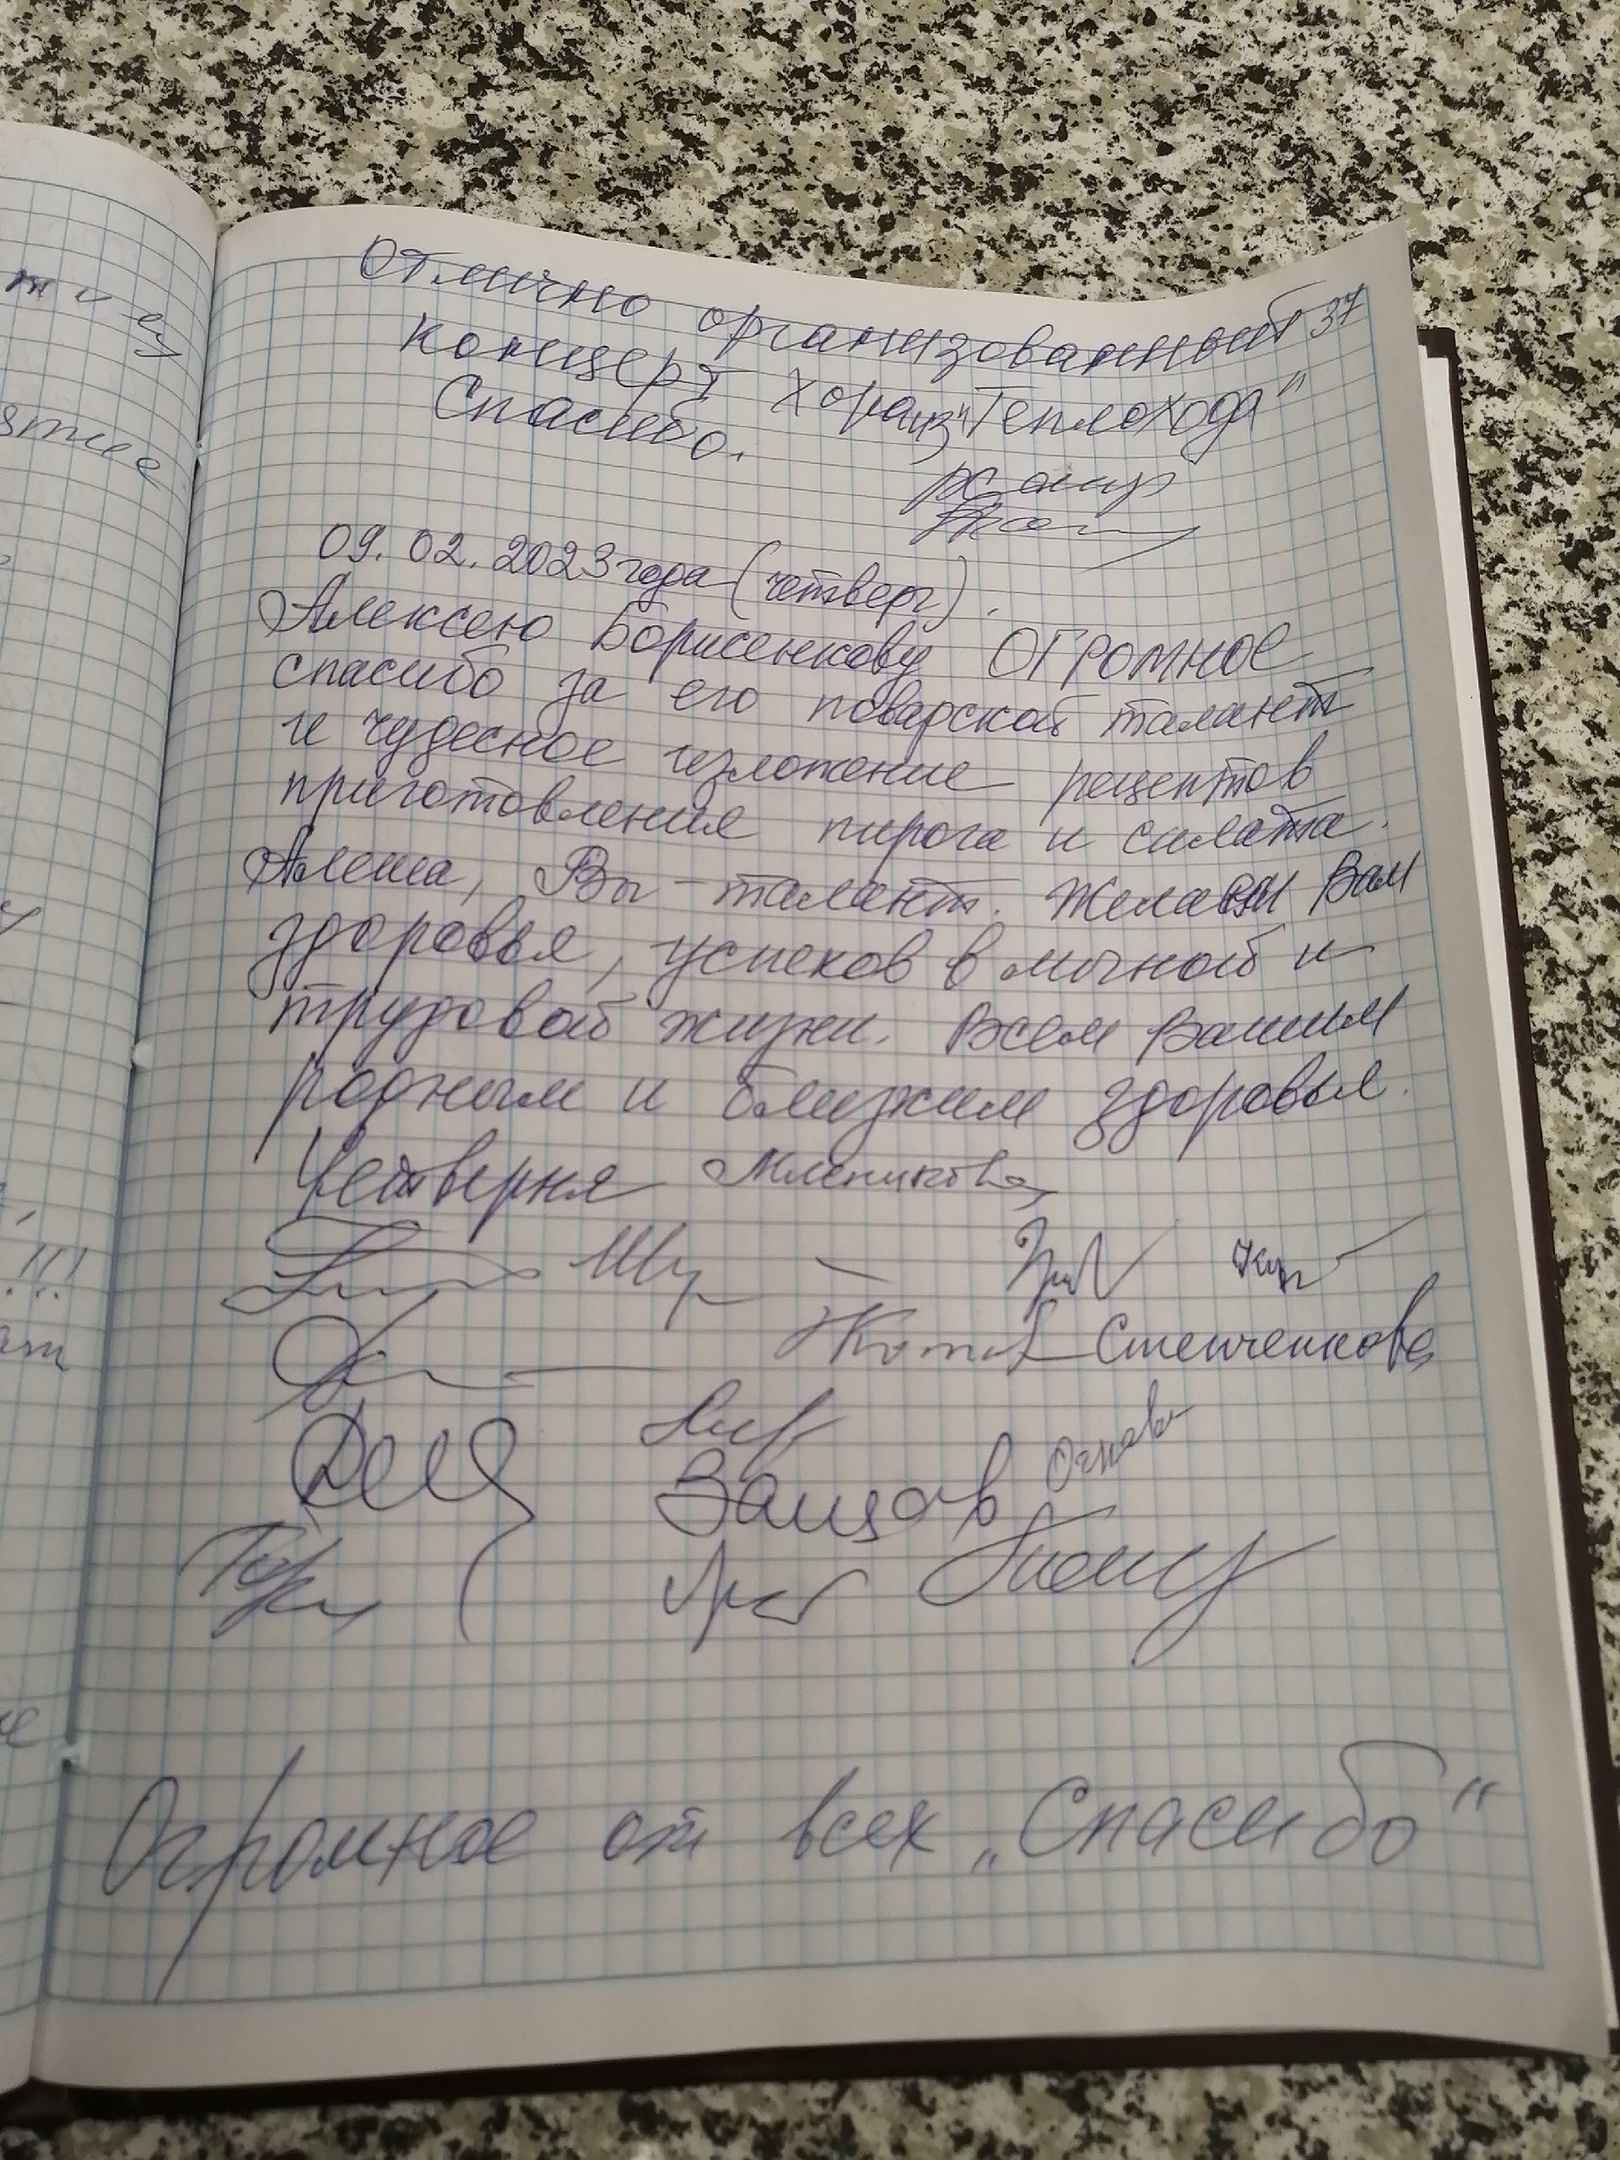 37
Отлично организованный
концерт хора из "Теплохода"
Спасибо.
09.02.2023 года (четверг).
Алексею Борисенкову ОГРОМНОЕ
спасибо за его поварской талант
и чудесное изложение рецептов
приготовления пирога и салата.
Алеша, Вы - талант. Желаем Вам
здоровья, успехов в личной и
трудовой жизни. Всем Вашим
родным и близким здоровья.
Четверня
Стенченкова
Зайцов
Огромное от всех „Спасибо"